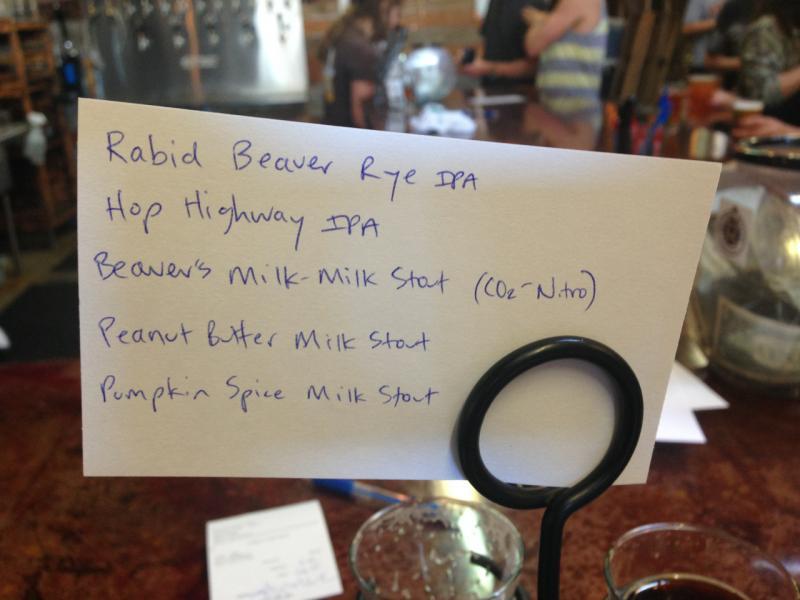 Rabid Beaver Rye IPA
Hop Highway IPA
Beaver's Milk-Milk Stout (CO2-Nitro)
Peanut Butter Milk Stout
Pumpkin Spice Milk Stout